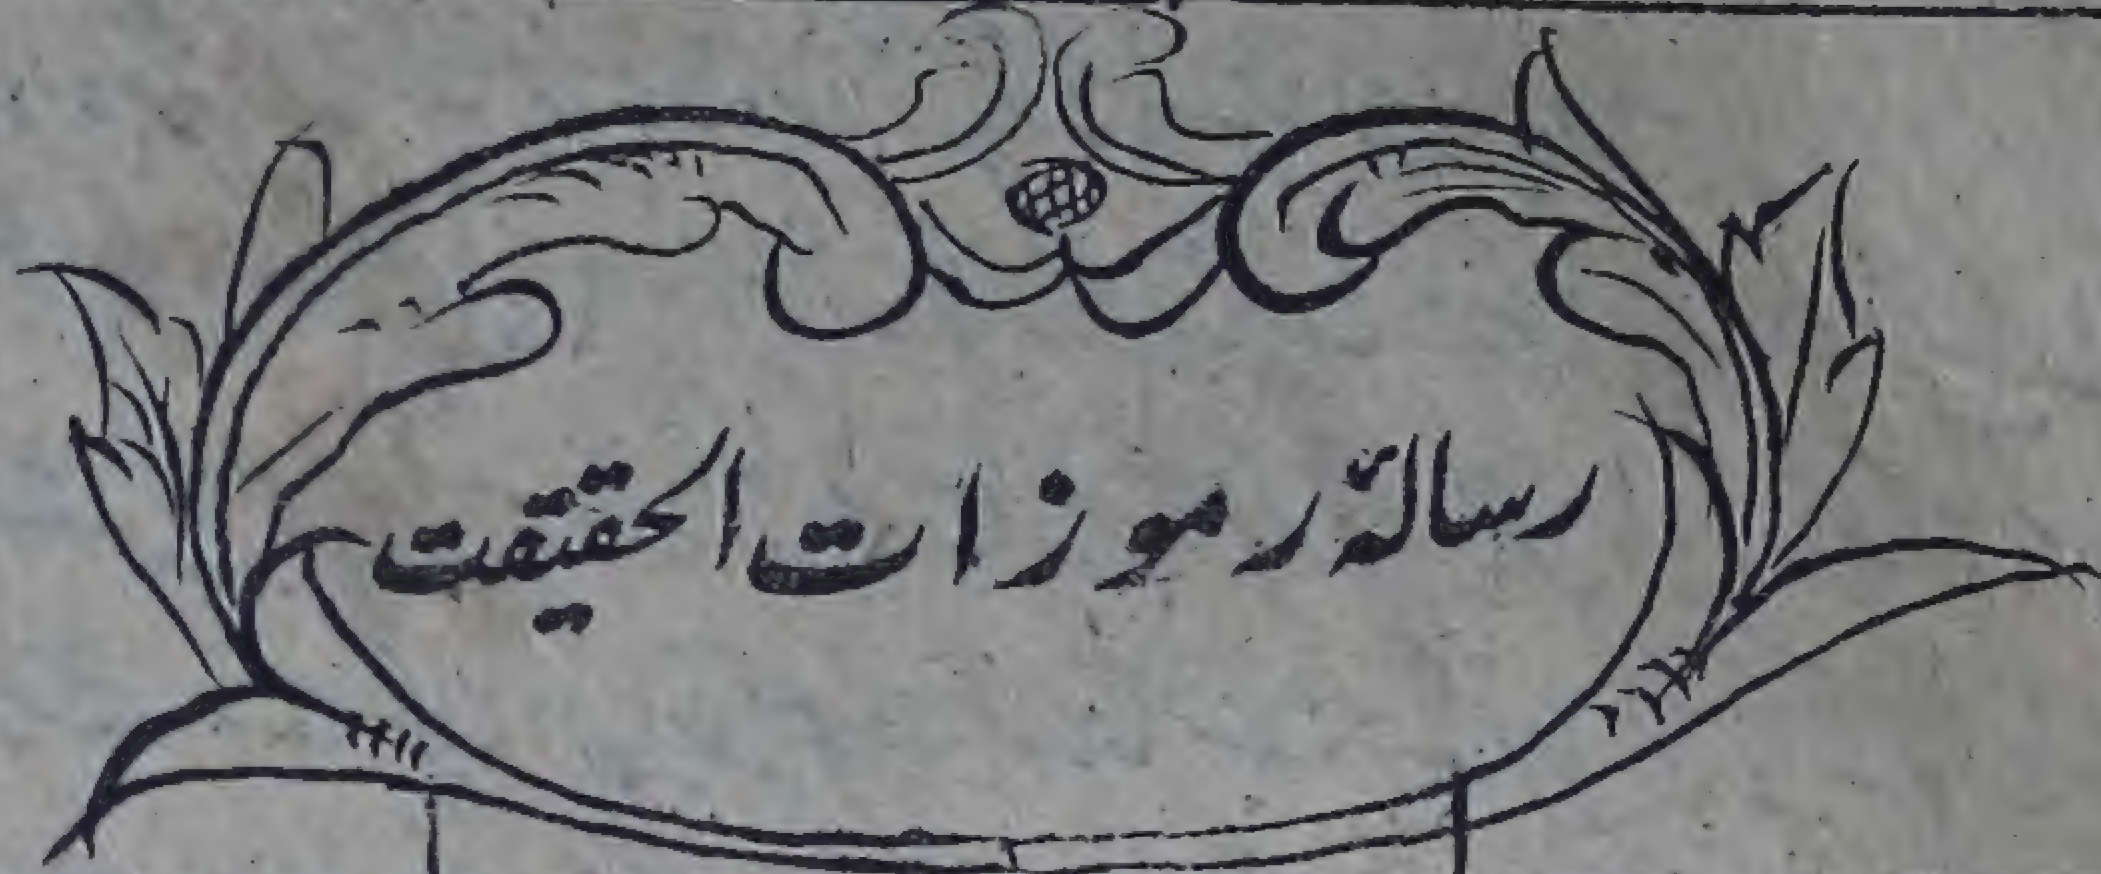 رسالۀ رموزات الحقیقت